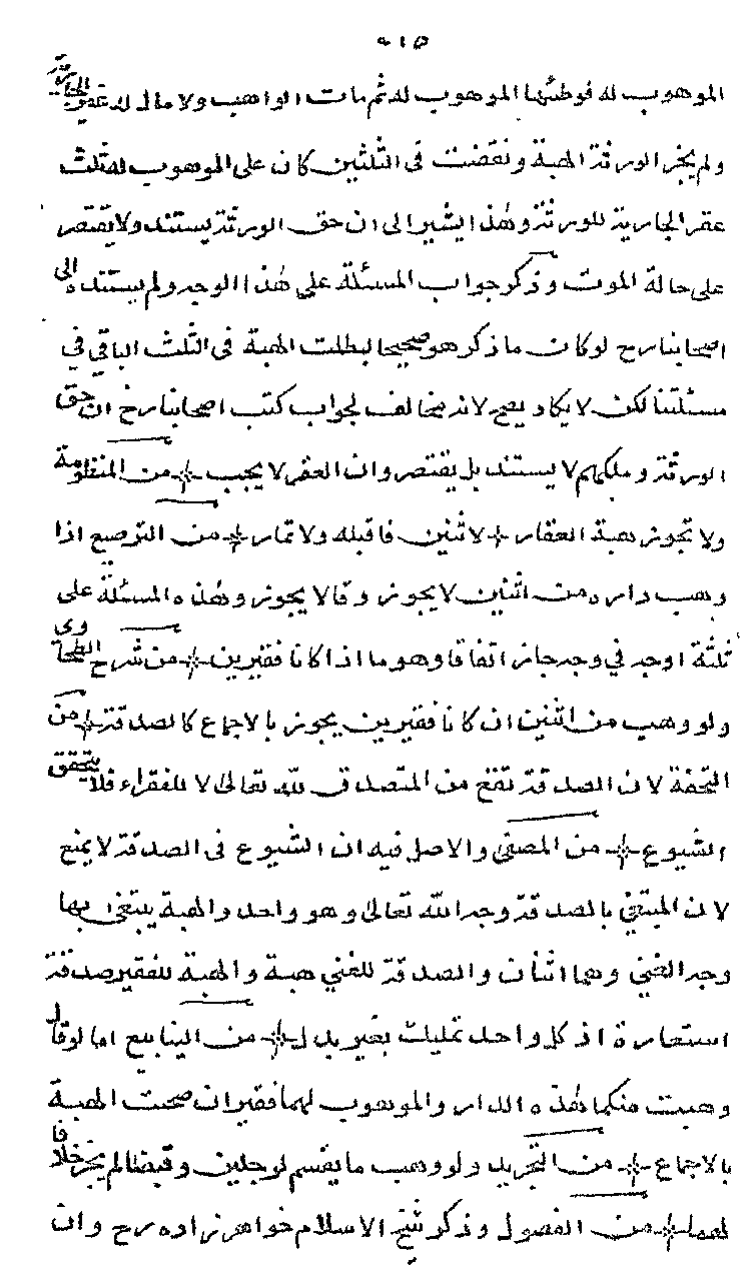 ٩١٥
الموهوب له فوطئها الموهوب له ثم مات الواهب ولا مال له غير الجارية
ولم يجز الورثة الهبة ونقضت فى الثلثين كان على الموهوب له ثلث
عقر الجارية للورثة وهذا يشير الى ان حق الورثة يستند ولا يقتصر
على حالة الموت وذكر جواب المسئلة على هذا الوجه ولم يسنده الى
اصحابنا رح لو كان ما ذكر هو صحيحا لبطلت الهبة فى الثلث الباقي في
مسئلتنا لكن لا يكاد يصح لانه يخالف لجواب كتب اصحابنا رح ان حق
الورثة وملكهم لا يستند بل يقتصر وان العقر لا يجب من المنظومة
ولا تجوز هبة العقار لاثنين فاقبله ولا تمار من الترصيع اذا
وهب داره من اثنين لا يجوز وقالا يجوز وهذه المسئلة على
ثلثة اوجه في وجه جاز اتفاقا وهو ما اذا كانا فقيرين من شرح الطحاوى
ولو وهب من اثنين ان كانا فقيرين يجوز بالاجماع كالصدقة من
التحفة لان الصدقة تقع من المتصدق لله تعالى لا للفقراء فلا يتحقق
الشيوع من المصفى والاصل فيه ان الشيوع فى الصدقة لا يمنع
لان المبتغى بالصدقة وجه الله تعالى وهو واحد والهبة يبتغى بها
وجه الغني وهما اثنان والصدقة للغني هبة والهبة للفقير صدقة
استعارة اذ كل واحد تمليك بغير بدل من الينابيع اما لو قال
وهبت منكما هذه الدار والموهوب لهما فقيران صحت الهبة
بالاجماع من التجريد ولو وهب ما يقسم لرجلين وقبضا لم يجز خلافا
لهما من الفصول وذكر شيخ الاسلام خواهر زاده رح وان